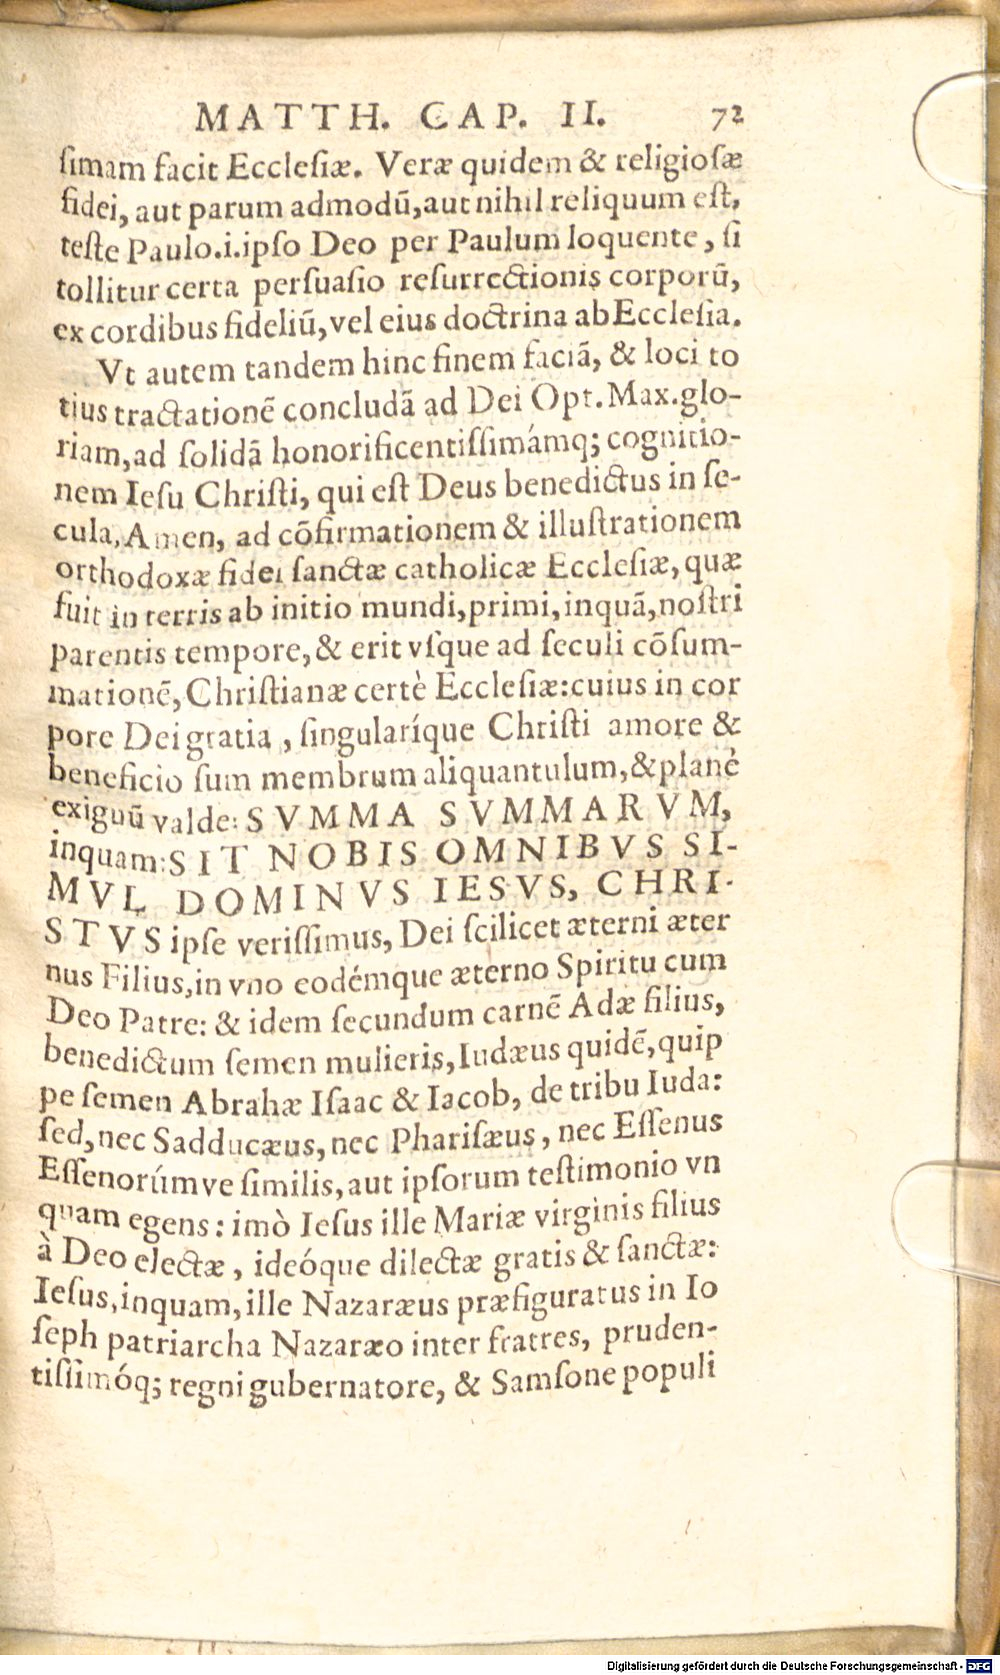 MATTH. CAP. II. 72
ſimam facit Eccleſiæ. Veræ quidem & religioſæ
fidei, aut parum admodũ, aut nihil reliquum eſt,
teſte Paulo.i.ipſo Deo per Paulum loquente, ſi
tollitur certa perſuaſio reſurrectionis corporũ,
ex cordibus fideliũ, vel eius doctrina ab Eccleſia.
Vt autem tandem hinc finem faciã, & loci to
tius tractationẽ concludã ad Dei Opt. Max. glo-
riam, ad ſolidã honorificentiſſimámq; cognitio-
nem Ieſu Chriſti, qui eſt Deus benedictus in ſe-
cula, Amen, ad cõfirmationem & illuſtrationem
orthodoxæ fidei ſanctæ catholicæ Eccleſiæ, quæ
fuit in terris ab initio mundi, primi, inquã, noſtri
parentis tempore, & erit vſque ad ſeculi cõſum-
mationẽ, Chriſtianæ certè Eccleſiæ: cuius in cor
pore Dei gratia, ſingularíque Chriſti amore &
beneficio ſum membrum aliquantulum, & planè
exiguũ valde: SVMMA SVMMARVM,
inquam: SIT NOBIS OMNIBVS SI-
MVL DOMINVS IESVS, CHRI-
STVS ipſe veriſſimus, Dei ſcilicet æterni æter
nus Filius, in vno eodémque æterno Spiritu cum
Deo Patre: & idem ſecundum carnẽ Adæ filius,
benedictum ſemen mulieris, Iudæus quidẽ, quip
pe ſemen Abrahæ Iſaac & Iacob, de tribu Iuda:
ſed, nec Sadducæus, nec Phariſæus, nec Eſſenus
Eſſenorúmve ſimilis, aut ipſorum teſtimonio vn
quam egens: imò Ieſus ille Mariæ virginis filius
à Deo electæ, ideóque dilectæ gratis & ſanctæ:
Ieſus, inquam, ille Nazaræus præfiguratus in Io
ſeph patriarcha Nazaræo inter fratres, pruden-
tiſſimóq; regni gubernatore, & Samſone populi
Digitalisierung gefördert durch die Deutsche Forschungsgemeinschaft - DFG